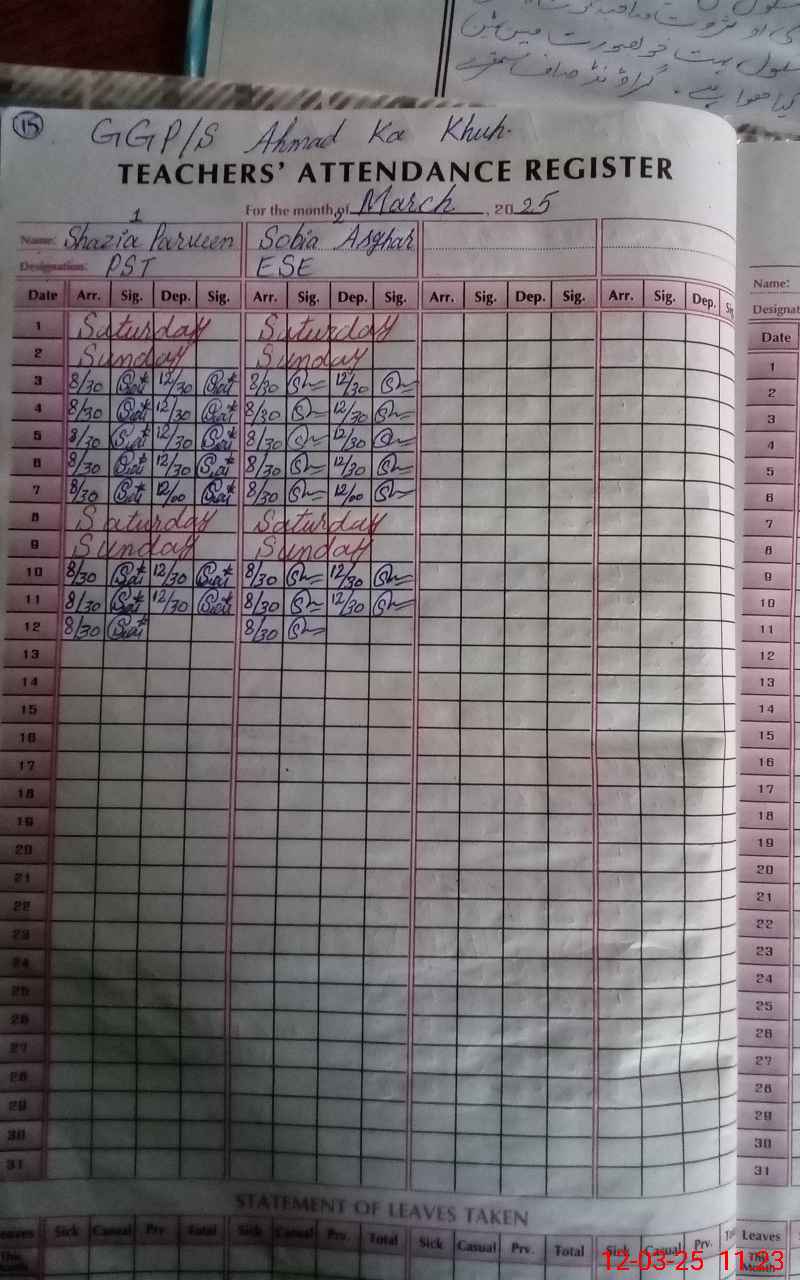 15
GGP/S Ahmad Ka Khuh.
TEACHERS' ATTENDANCE REGISTER
For the month of March, 2025
1 2
Name: Shazia Parveen Sobia Asghar
Designation: PST ESE
Date Arr. Sig. Dep. Sig. Arr. Sig. Dep. Sig. Arr. Sig. Dep. Sig. Arr. Sig. Dep. Sig
1 Saturday Saturday
2 Sunday Sunday
3 8/30 12/30 8/30 12/30
4 8/30 12/30 8/30 12/30
5 8/30 12/30 8/30 12/30
6 8/30 12/30 8/30 12/30
7 8/30 12/00 8/30 12/00
8 Saturday Saturday
9 Sunday Sunday
10 8/30 12/30 8/30 12/30
11 8/30 12/30 8/30 12/30
12 8/30 8/30
13
14
15
16
17
18
19
20
21
22
23
24
25
26
27
28
29
30
31
STATEMENT OF LEAVES TAKEN
Leaves Sick Casual Prv. Total Sick Casual Prv. Total Sick Casual Prv. Total Sick Casual Prv.
This Month
Name:
Designat
Date
1
2
3
4
5
6
7
8
9
10
11
12
13
14
15
16
17
18
19
20
21
22
23
24
25
26
27
28
29
30
31
Leaves
This Month
12-03-25 11:33